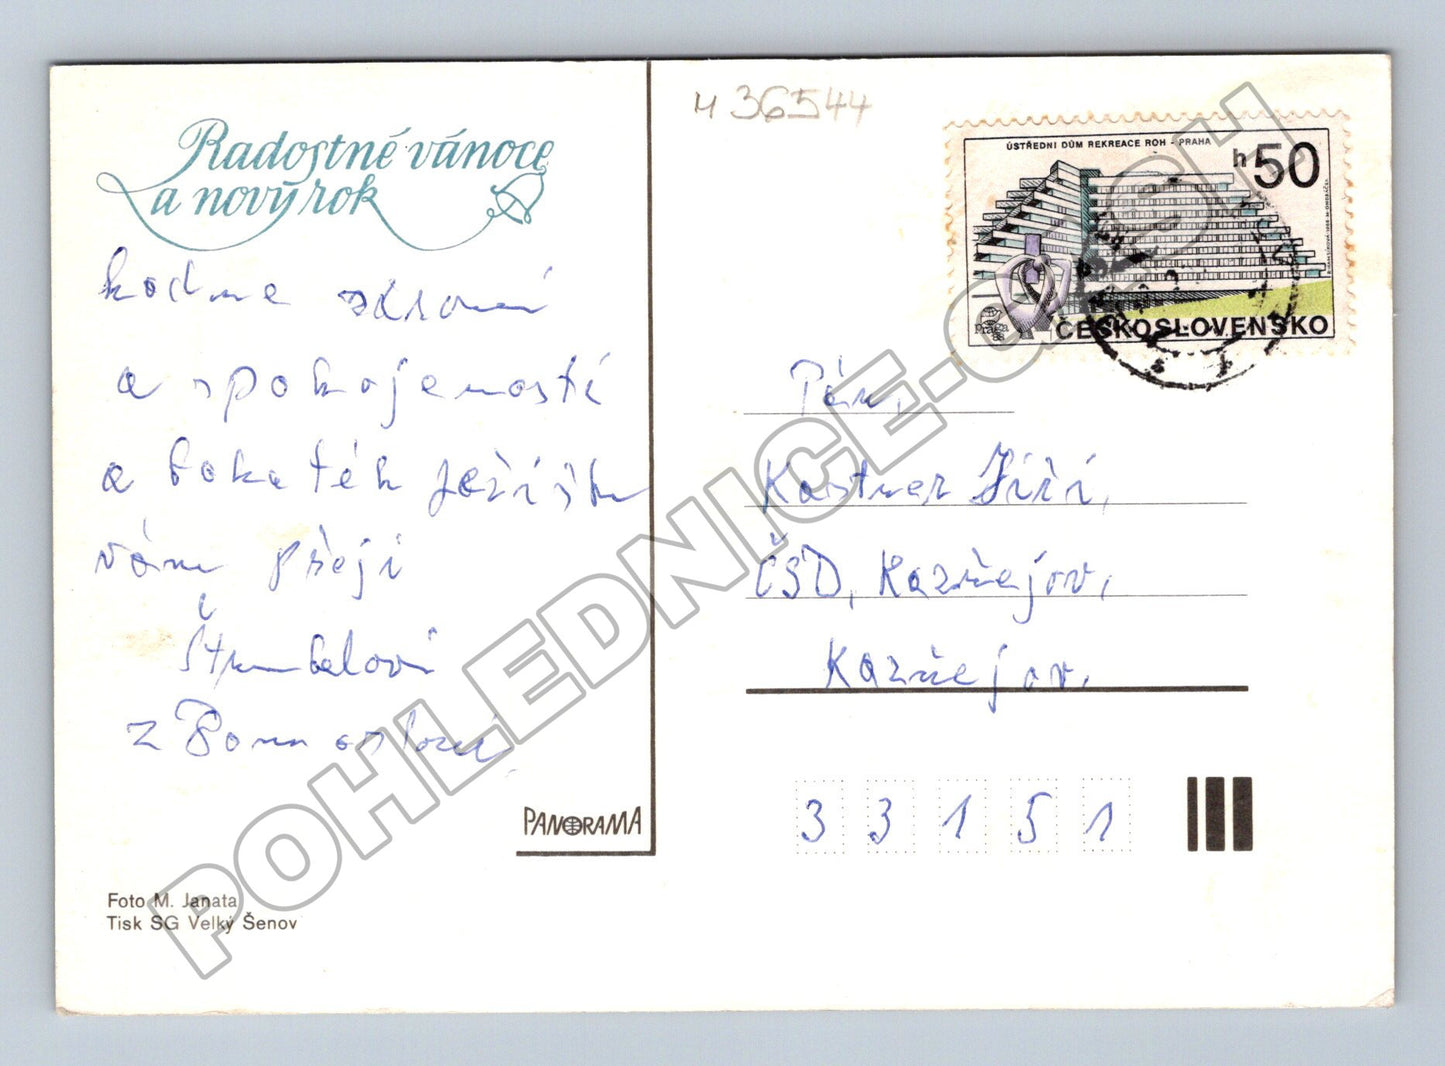 Radostné vánoce
a nový rok
hodne zdraví
a spokojenosti
a bohatéh ježíška
vám přeji
Štrunbelovi
z
PANORAMA
Foto M. Janata
Tisk SG Velký Šenov
M 36544
ÚSTŘEDNÍ DŮM REKREACE ROH - PRAHA
h 50
Praga 88
ČESKOSLOVENSKO
Pán,
Kastner Jiří,
ČSD, Kaznějov,
Kaznějov,
33151
POHLEDNICE-CASH